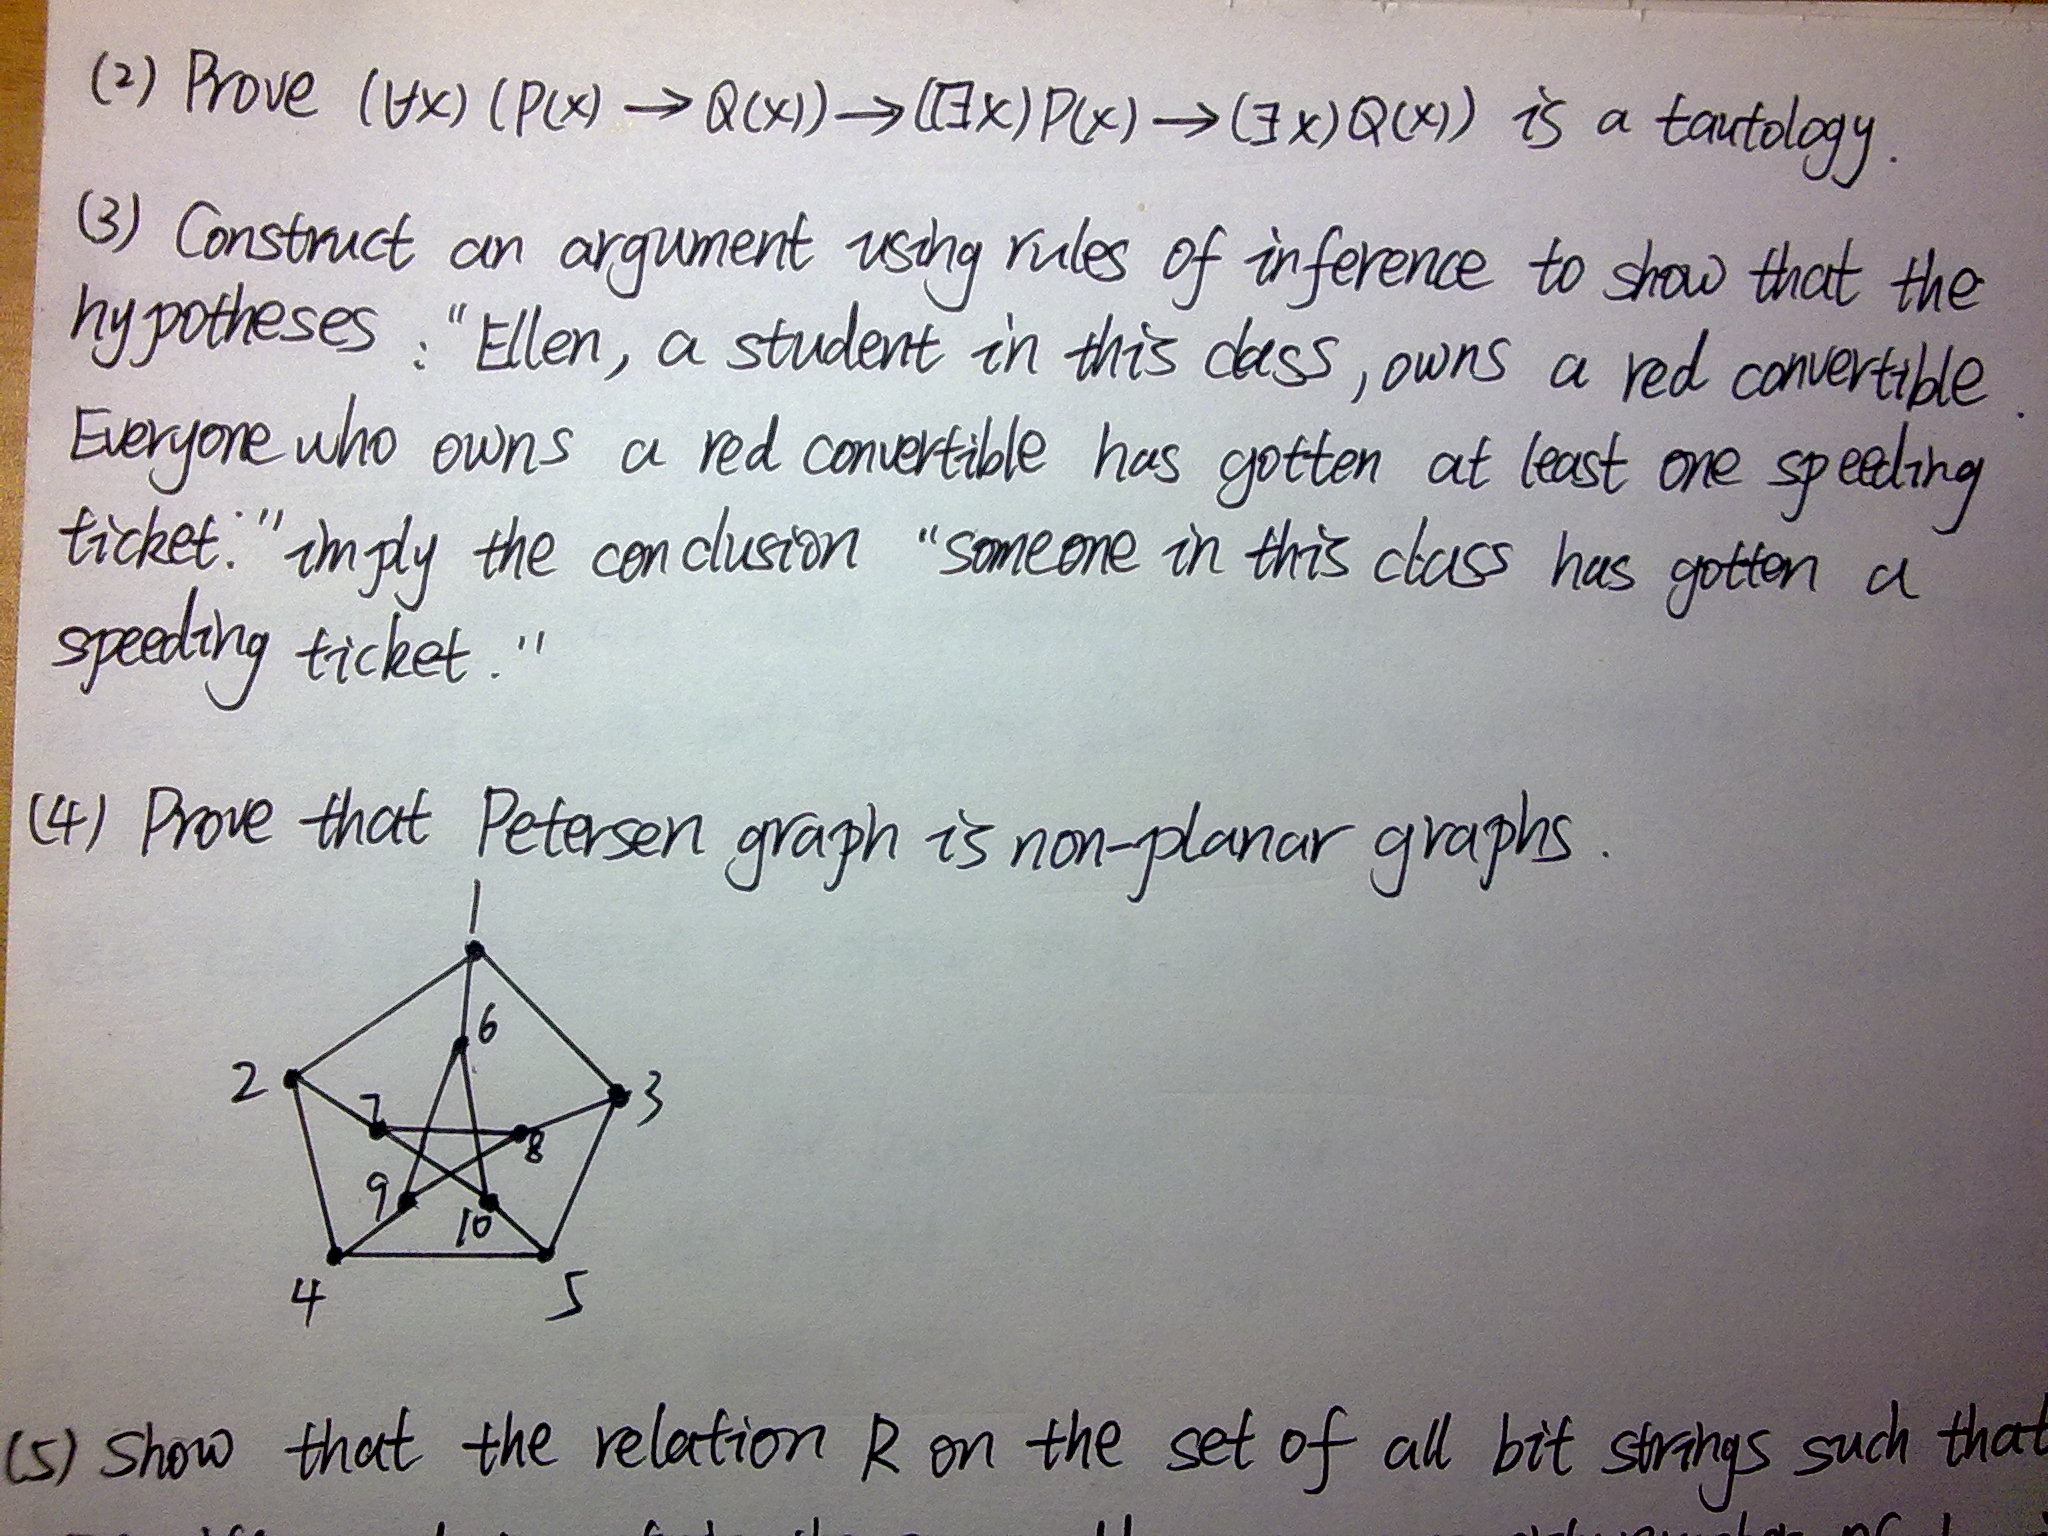 (2) Prove (∀x) (P(x) → Q(x)) → ((∃x) P(x) → (∃x) Q(x)) is a tautology.
(3) Construct an argument using rules of inference to show that the
hypotheses : "Ellen, a student in this class, owns a red convertible.
Everyone who owns a red convertible has gotten at least one speeding
ticket." imply the conclusion "someone in this class has gotten a
speeding ticket."
(4) Prove that Petersen graph is non-planar graphs.
1
6
2
7
3
8
9
10
4
5
(5) Show that the relation R on the set of all bit strings such that